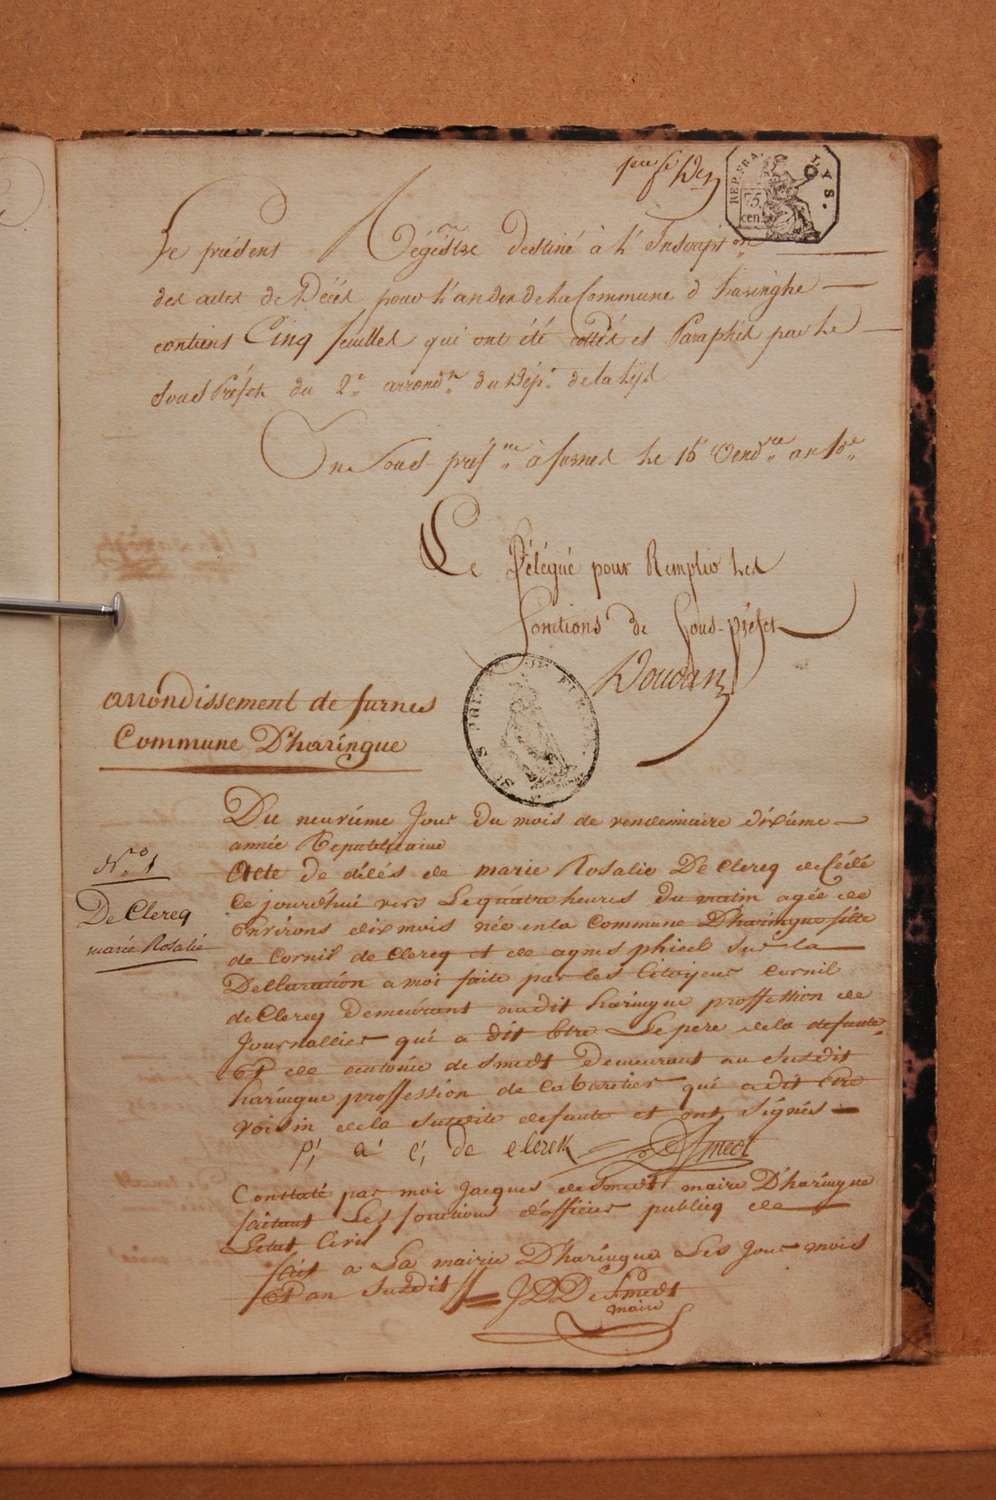 REP. FRA. LYS.
75 cen.
Le présent Régistre destiné à l'Inscript.on
des actes de Décès pour l'an dix de la Commune d'haringhe
contient Cinq feuilles qui ont été cottés et Paraphés par le
Sous Préfet du 2.e arrond.t du Dép.t de la Lys
En Sous-préf.re à furnes le 15 Vend.re an 10.e
Le Délégué pour Remplir les
fonctions de Sous-préfet
arrondissement de furnes
Commune D'haringue
Du neuvième Jour du mois de vendemiaire dixième
année Republicaine
N.o 1
De Clercq
marie Rosalie
Acte de décés de marie Rosalie De Clercq décédé
Ce jourd'hui vers Le quatre heures du matin agée de
Environs dix mois née en la Commune D'haringue fille
de Cornil de Clercq et de agnes phicel Sur la
Declaration a moi faite par les Citoyens Cornil
de Clercq Demeurant audit haringue proffession de
Journallier qui a dit Etre Le pere de la defunte
Et de antoine de Smedt Demeurant au Susdit
haringue proffession de Cabaretier qui a dit Etre
voisin de la Susdite defunte et ont Signés
p, a c, de clerck DSmedt
Constaté par moi Jacques de Smedt maire D'haringue
faisant Les fonctions d'officier publicq de
Letat Civil
fait a La mairie D'haringue Les Jour mois
Et an Susdit JDDeSmedt
maire